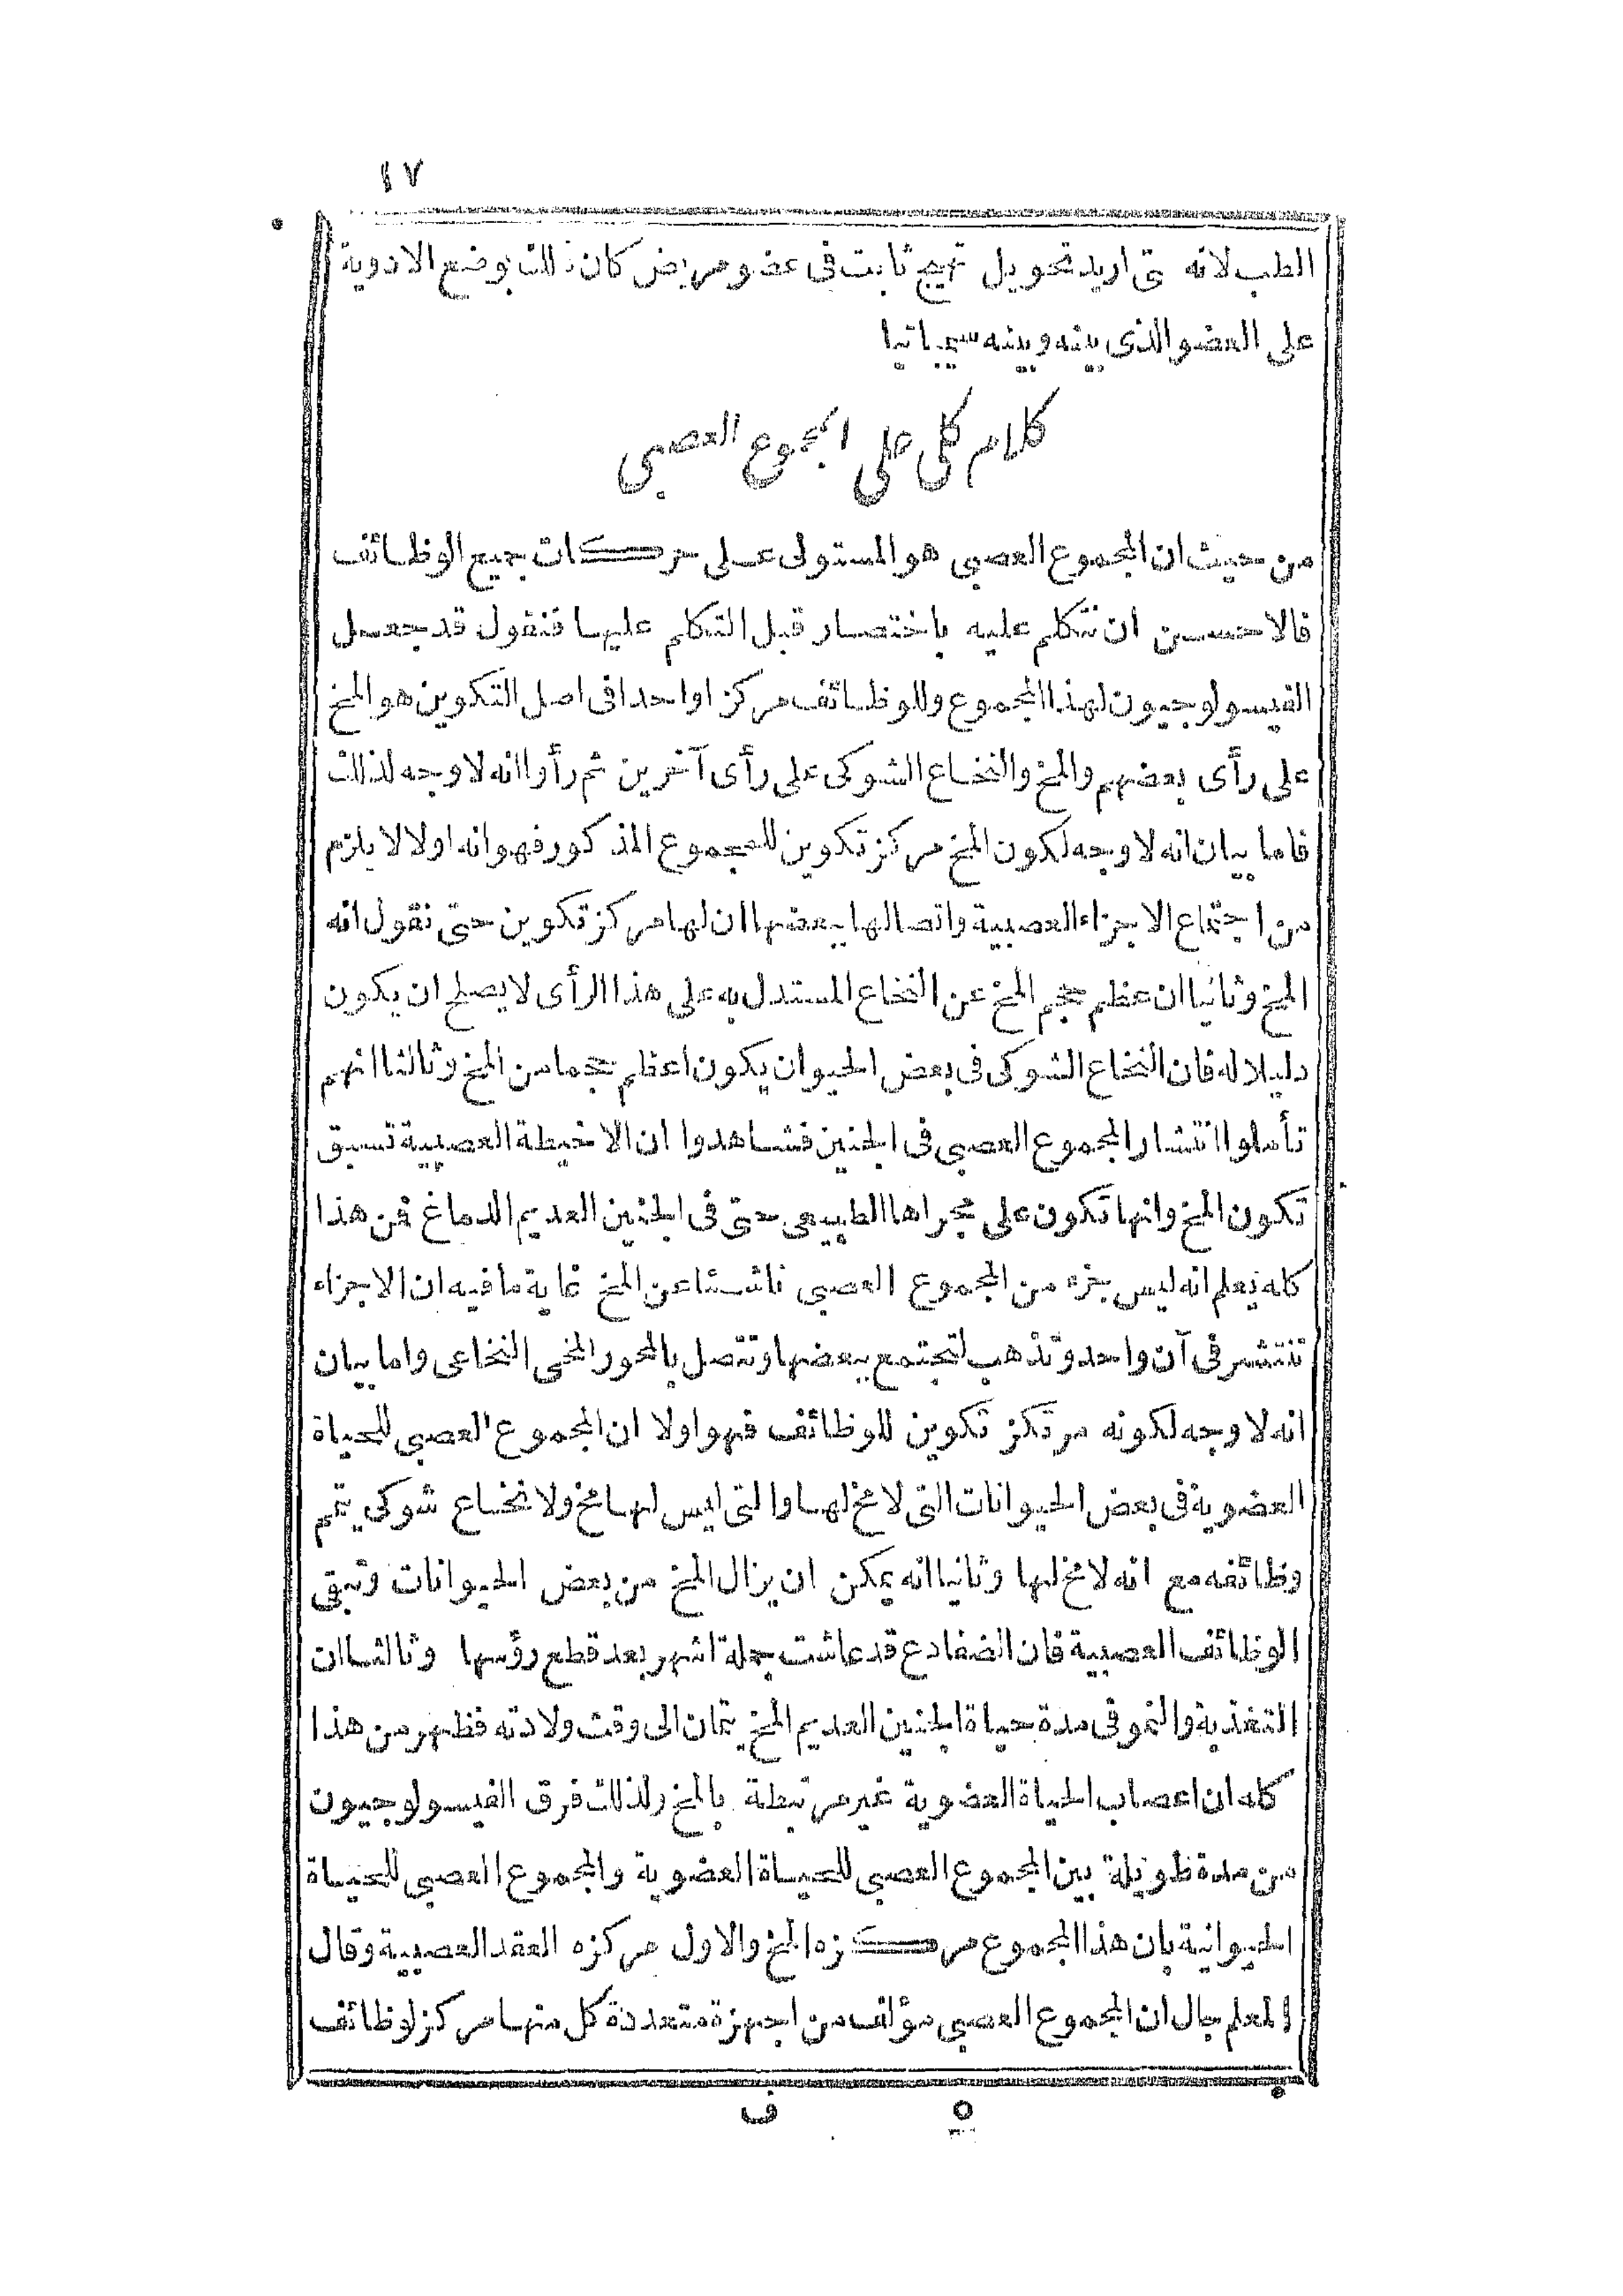 ١٧
الطب لانه تى اريد تحويل تهيج ثابت فى عضو مريض كان ذلك بوضع الادوية
على العضو الذى بينه وبينه سيمباتيا
كلام كلى على المجموع العصبى
من حيث ان المجموع العصبى هو المستولى عـلى حركات جميع الوظائف
فالاحسن ان نتكلم عليه باختصار قبل التكلم عليها فنقول قد جعل
الفيسولوجيون لهذا المجموع وللوظائف مركزا واحدا فى اصل التكوين هو المخ
على رأى بعضهم والمخ والنخاع الشوكى على رأى آخرين ثم رأوا انه لا وجه لذلك
فاما بيان انه لا وجه لكون المخ مركز تكوين للمجموع المذكور فهو انه اولا لا يلزم
من اجتماع الاجزاء العصبية واتصالها ببعضها ان لها مركز تكوين حتى نقول انه
المخ وثانيا ان عظم حجم المخ عن النخاع المستدل به على هذا الرأى لا يصلح ان يكون
دليلا له فان النخاع الشوكى فى بعض الحيوان يكون اعظم حجما من المخ وثالثا انهم
تأملوا انتشار المجموع العصبى فى الجنين فشاهدوا ان الاخيطة العصبية تسبق
تكون المخ وانها تكون على مجراها الطبيعى حتى فى الجنين العديم الدماغ فمن هذا
كله نعلم انه ليس جزء من المجموع العصبى ناشئا عن المخ غاية ما فيه ان الاجزاء
تنتشر فى آن واحد وتذهب لتجتمع ببعضها وتتصل بالمحور المخى النخاعى واما بيان
انه لا وجه لكونه مرتكز تكوين للوظائف فهو اولا ان المجموع العصبى للحياة
العضوية فى بعض الحيوانات التى لا مخ لها والتى ليس لها مخ ولا نخاع شوكى يتم
وظائفه مع انه لا مخ لها وثانيا انه يمكن ان يزال المخ من بعض الحيوانات وتبقى
الوظائف العصبية فان الضفادع قد عاشت جملة اشهر بعد قطع رؤسها وثالثا ان
التغذية والنمو فى مدة حياة الجنين العديم المخ يتمان الى وقت ولادته فظهر من هذا
كله ان اعصاب الحياة العضوية غير مرتبطة بالمخ ولذلك فرق الفيسولوجيون
من مدة طويلة بين المجموع العصبى للحياة العضوية والمجموع العصبى للحياة
الحيوانية بان هذا المجموع مركزه المخ والاول مركزه العقد العصبية وقال
المعلم جال ان المجموع العصبى مؤلف من اجهزة متعددة كل منها مركز لوظائف
٥ ف